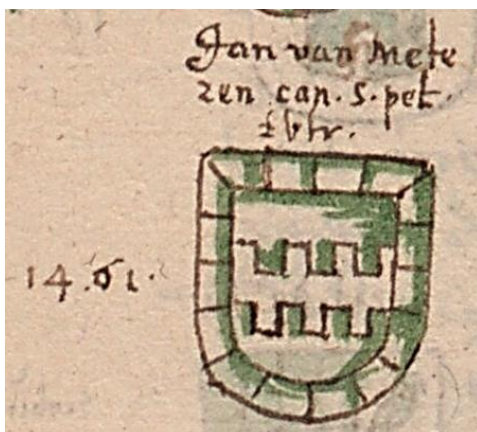 Jan van Mete
ren can. S. pet.
t vtr.
14.61.